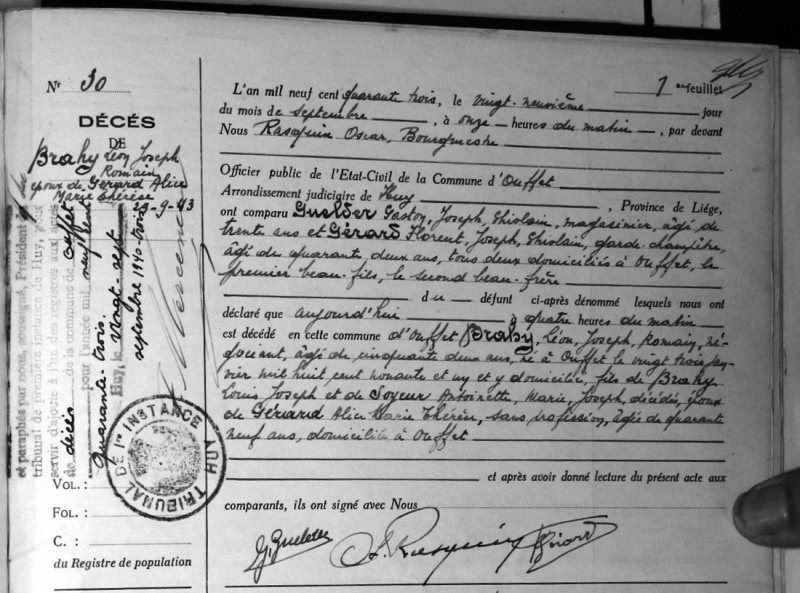 Nº 30
DÉCÈS
DE
Brahy Léon Joseph
Romain
époux de Gérard Alice
Marie Thérèse
29-9-43
et paraphés par nous, soussigné, Président
tribunal de première instance de Huy, pour
servir d'ajoute à l'un des registres aux actes
de décès de la commune de Ouffet
pour l'année mil neuf cent
quarante-trois.
Huy, le vingt-sept
septembre 1940-trois
TRIBUNAL DE 1re INSTANCE HUY
VOL. :
FOL. :
C. :
du Registre de population
1 feuillet
L'an mil neuf cent quarante trois, le vingt-neuvième jour
du mois de septembre, à onze heures du matin, par devant
Nous Rasquin Oscar, Bourgmestre
Officier public de l'Etat-Civil de la Commune d'Ouffet
Arrondissement judiciaire de Huy, Province de Liége,
ont comparu Guelder Gaston, Joseph, Ghislain, magasinier, âgé de
trente ans et Gérard Florent, Joseph, Ghislain, garde-champêtre,
âgé de quarante deux ans, tous deux domiciliés à Ouffet, le
premier beau-fils, le second beau-frère
du défunt ci-après dénommé lesquels nous ont
déclaré que aujourd'hui à quatre heures du matin
est décédé en cette commune d'Ouffet Brahy, Léon, Joseph, Romain, né-
gociant, âgé de cinquante deux ans, né à Ouffet le vingt trois jan-
vier mil huit cent nonante et un et y domicilié, fils de Brahy
Louis Joseph et de Joyeux Antoinette, Marie, Joseph, décédés, époux
de Gérard Alice Marie Thérèse, sans profession, âgée de quarante
neuf ans, domiciliée à Ouffet
et après avoir donné lecture du présent acte aux
comparants, ils ont signé avec Nous
G. Guelder
Gérard